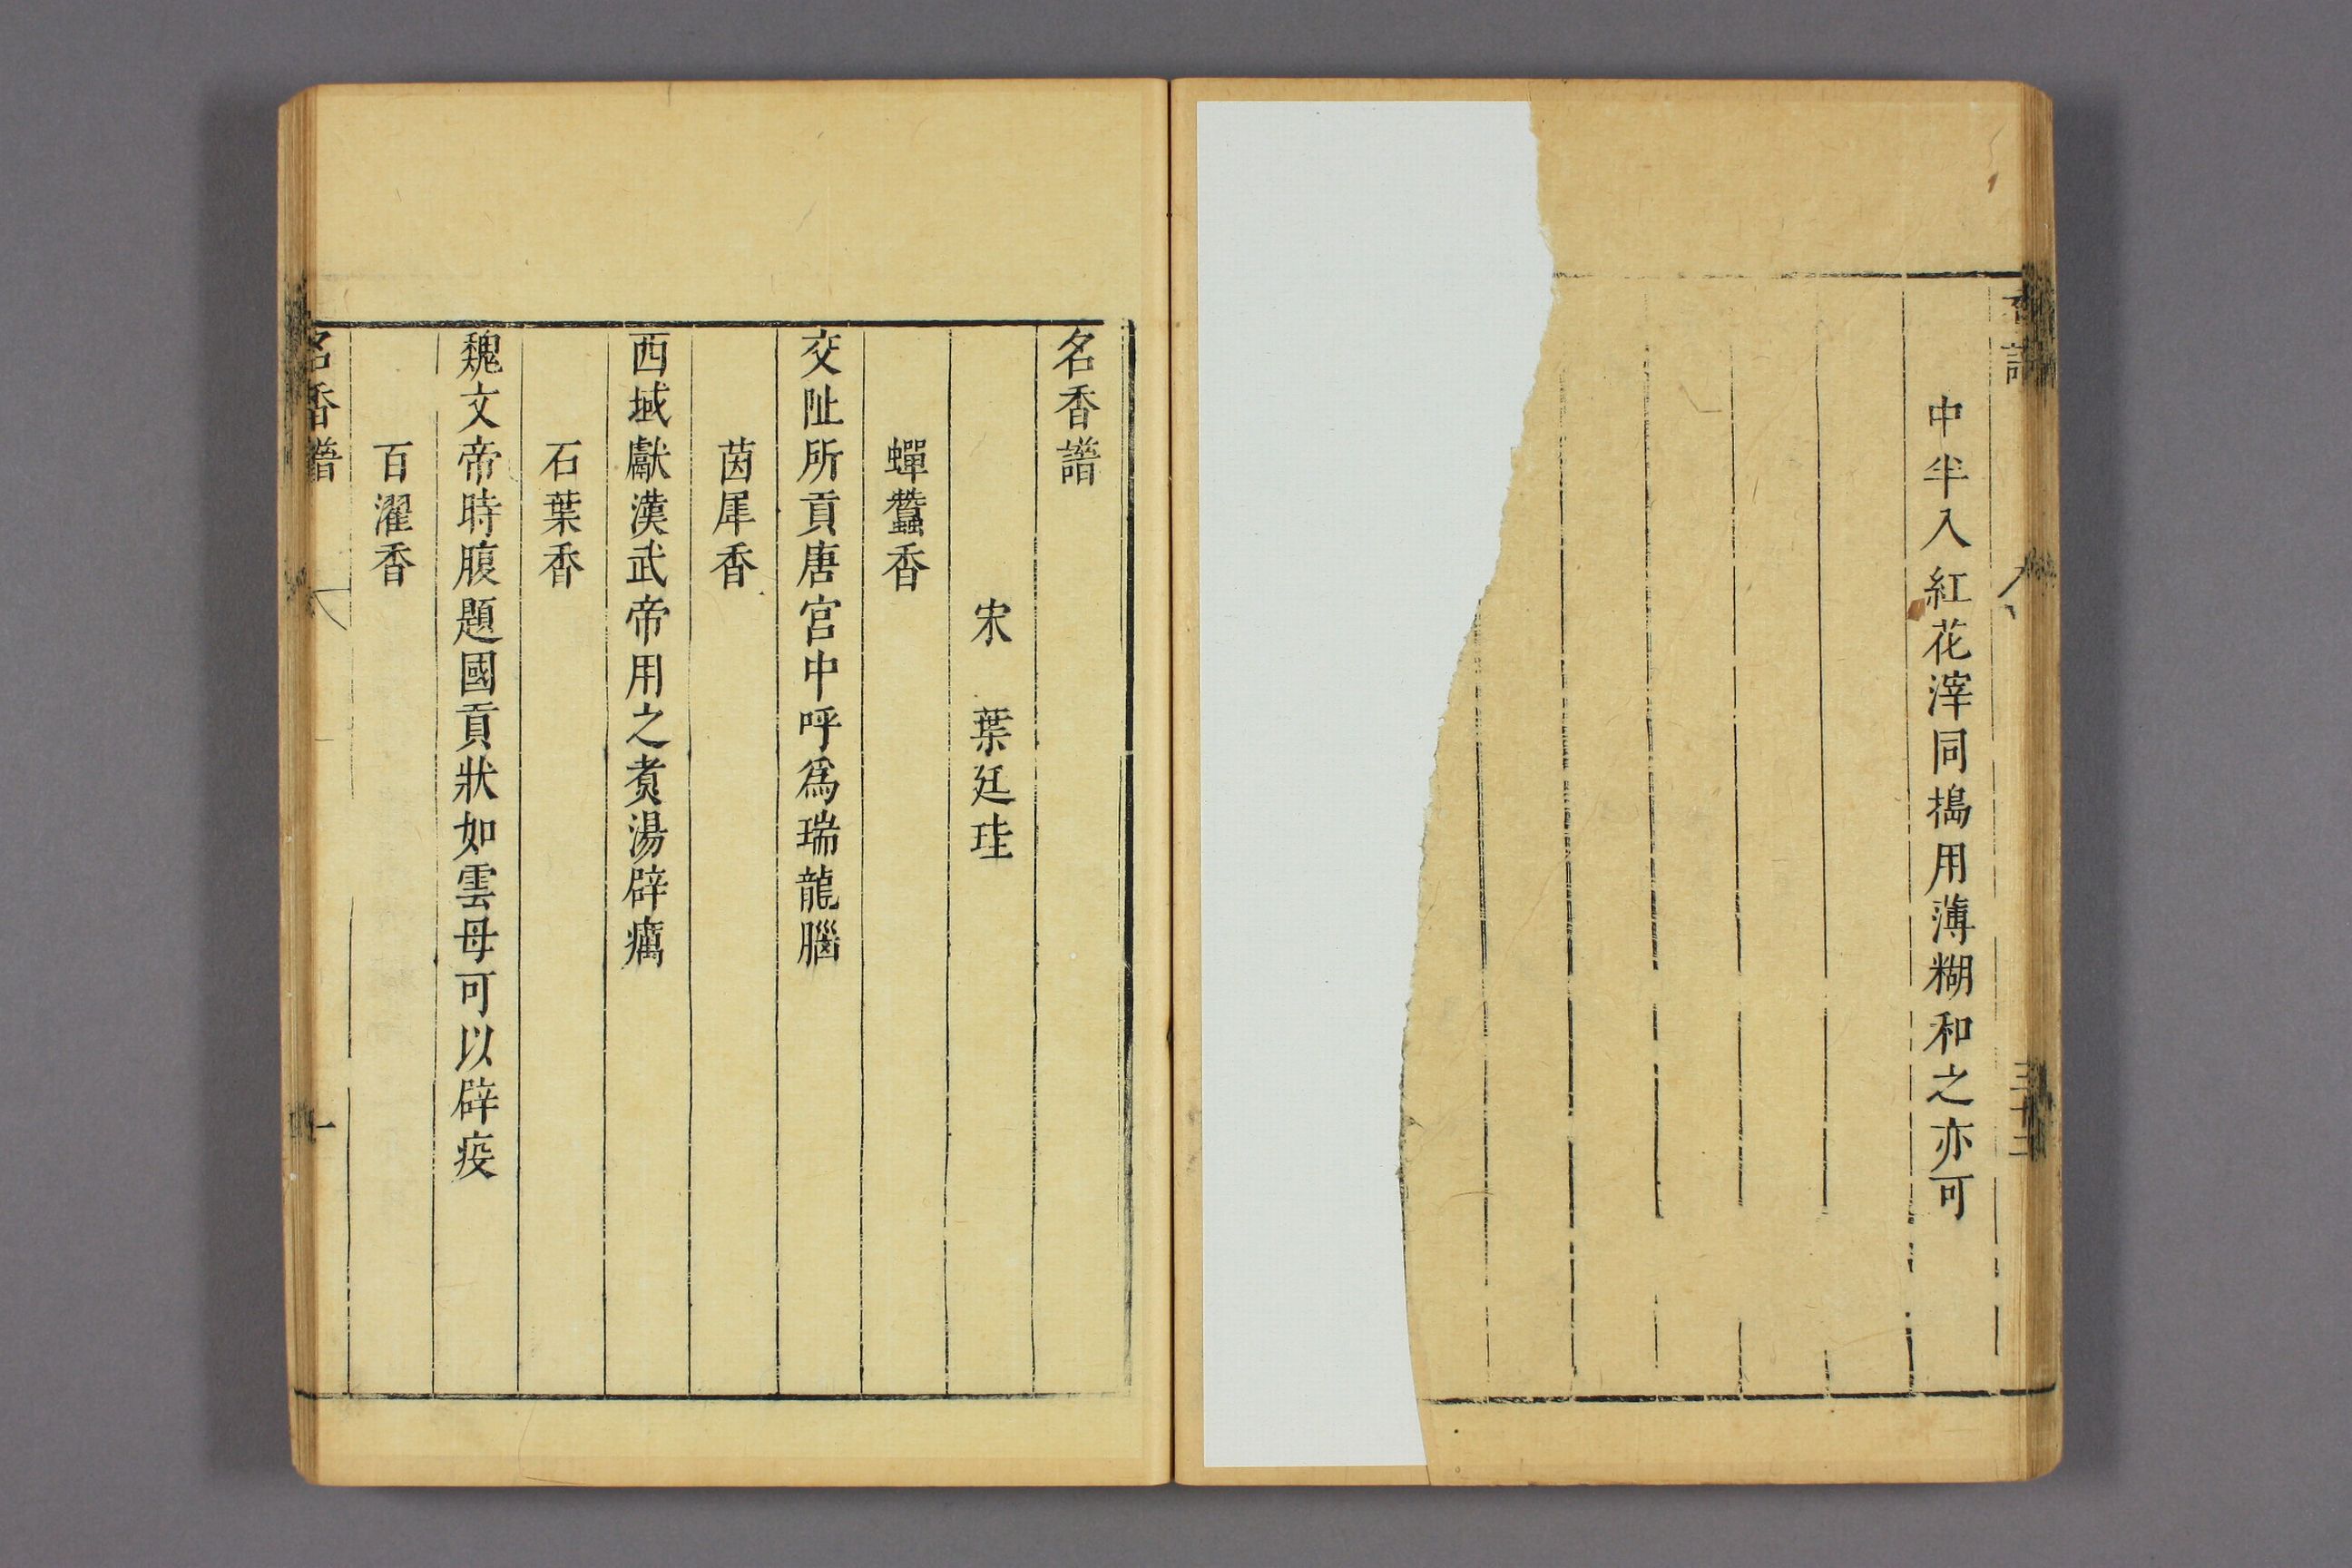 中半入紅花滓同搗用薄糊和之亦可
三十二
名香譜
宋 葉廷珪
蟬蠶香
交阯所貢唐宫中呼爲瑞龍腦
茵犀香
西域獻漢武帝用之煑湯辟癘
石葉香
魏文帝時腹題國貢狀如雲母可以辟疫
百濯香
名香譜
一